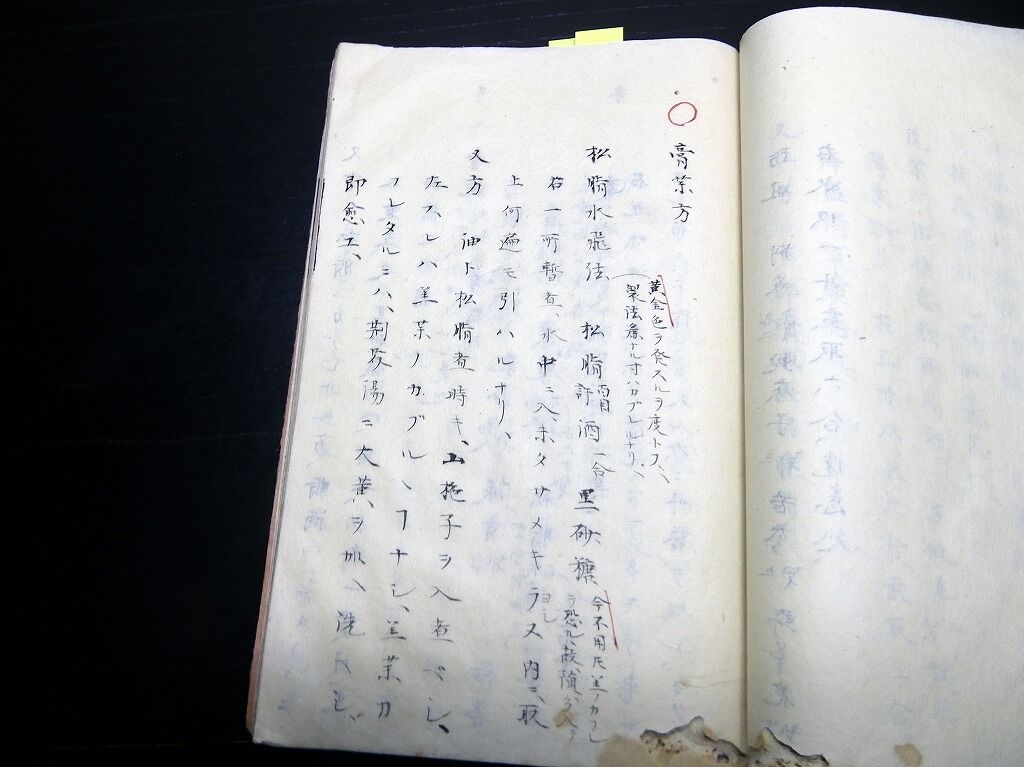 膏薬方
黄金色ヲ発スルヲ度トス、
製法麁ナル寸ハカブレルナリ、
松脂水飛法 松脂百目許酒一合 黒砂糖
今不用尤薬ノカブレ
ヲ恐ル故随分入テ
ヨシ
右一所暫煮、水中ニ入未タサメキラヌ内ニ取
上何遍モ引ハルナリ、
又方 油ト松脂煮時キ、山梔子ヲ入煮ベシ、
左スレハ薬ノカブルヽコナシ、薬カ
フレタルニハ、荊芥湯ニ大黄ヲ加ヘ洗ベシ、
即愈エ、